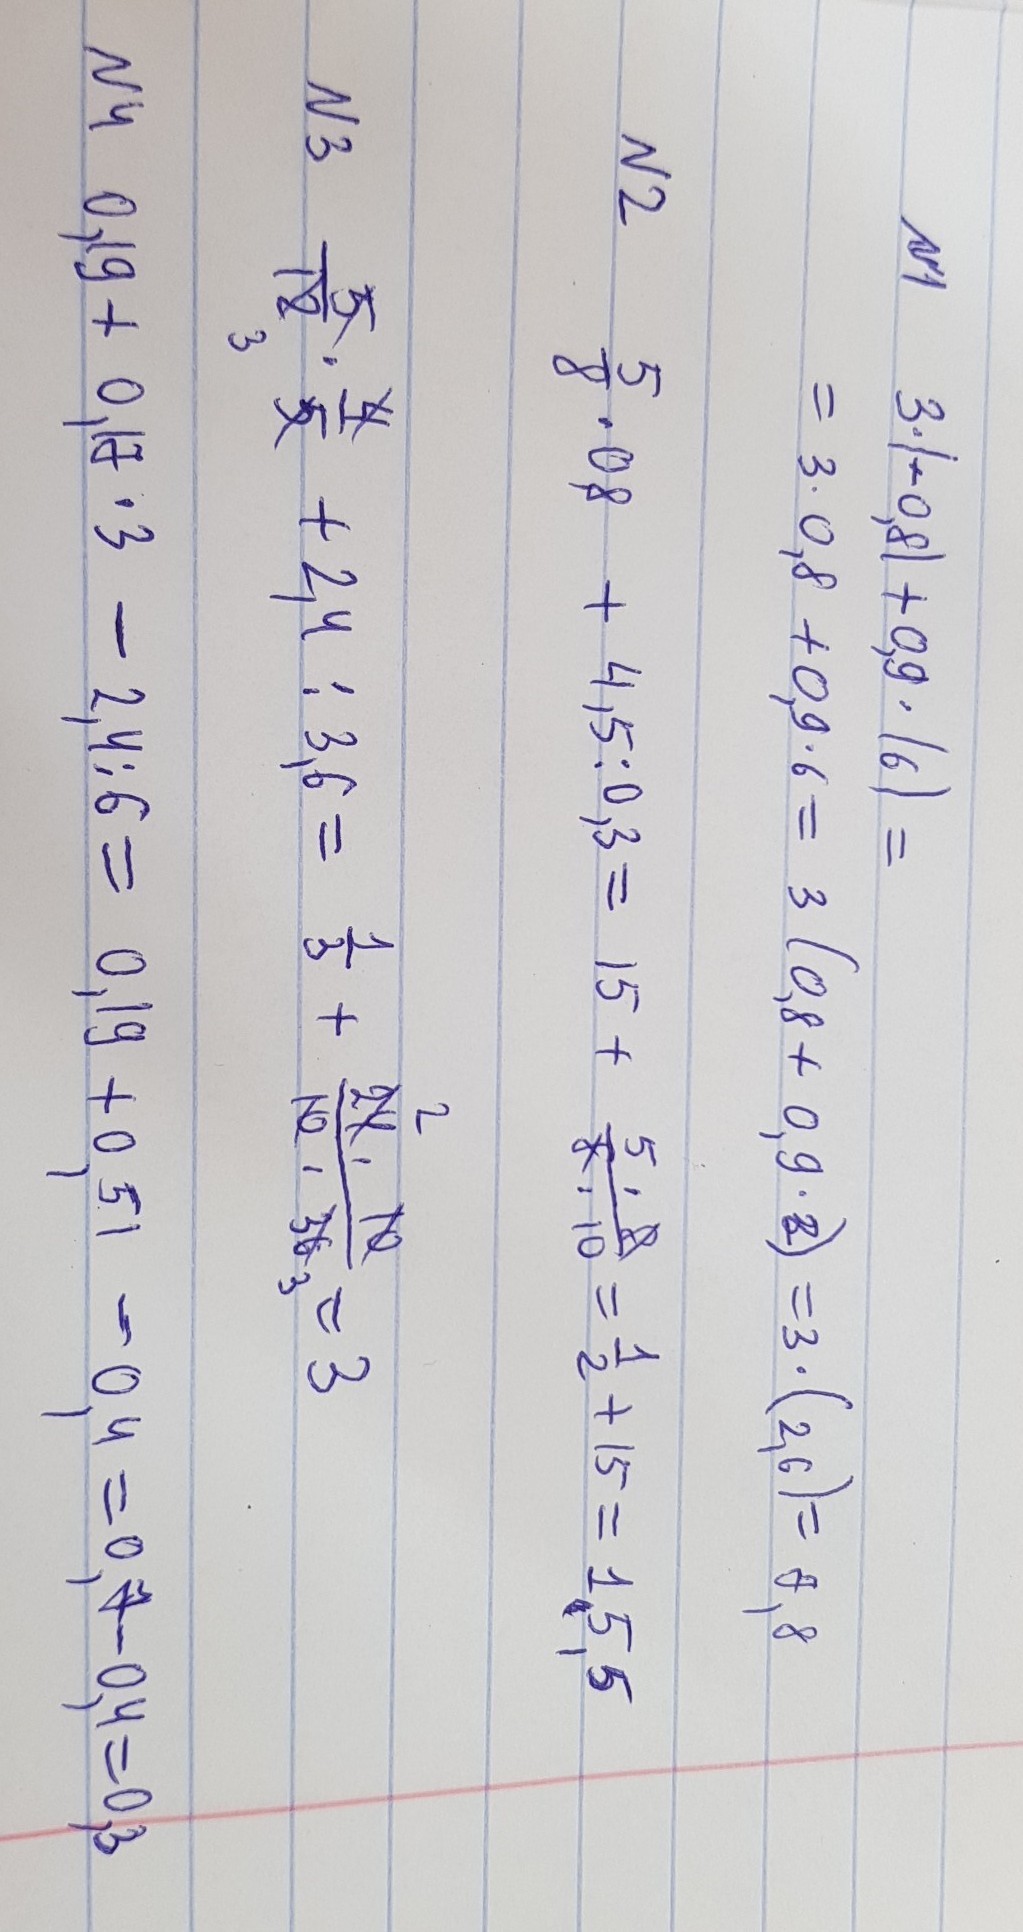 N1 3·|-0,8|+0,9·|6|=
= 3·0,8+0,9·6= 3(0,8+0,9·2)=3·(2,6)=7,8
N2 5/8·0,8 + 4,5:0,3= 15+ 5·8/8·10 = 1/2+15=15,5
N3 5/12·4/5 + 2,4:3,6= 1/3 + 24·10/10·36 = 3
2
3
3
N4 0,19+0,17·3 - 2,4:6= 0,19+0,51 -0,4=0,7-0,4=0,3